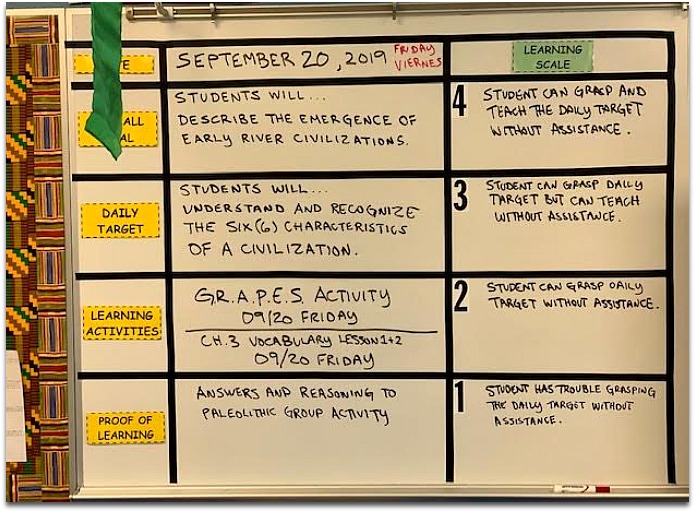 SEPTEMBER 20, 2019 FRIDAY
VIERNES
LEARNING
SCALE
ALL
STUDENTS WILL...
DESCRIBE THE EMERGENCE OF
EARLY RIVER CIVILIZATIONS.
4 STUDENT CAN GRASP AND
TEACH THE DAILY TARGET
WITHOUT ASSISTANCE.
DAILY
TARGET
STUDENTS WILL...
UNDERSTAND AND RECOGNIZE
THE SIX (6) CHARACTERISTICS
OF A CIVILIZATION.
3 STUDENT CAN GRASP DAILY
TARGET BUT CAN TEACH
WITHOUT ASSISTANCE.
LEARNING
ACTIVITIES
G.R.A.P.E.S. ACTIVITY
09/20 FRIDAY
CH.3 VOCABULARY LESSON 1+2
09/20 FRIDAY
2 STUDENT CAN GRASP DAILY
TARGET WITHOUT ASSISTANCE.
PROOF OF
LEARNING
ANSWERS AND REASONING TO
PALEOLITHIC GROUP ACTIVITY
1 STUDENT HAS TROUBLE GRASPING
THE DAILY TARGET WITHOUT
ASSISTANCE.